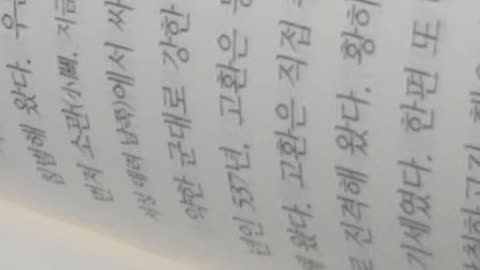 침범해 왔다.
먼저 소관(小關, 지금
대려 남쪽)에서 싸
약한 군대로 강한
년인 537년, 고환은
왔다. 고환은 직접
로 진격해 왔다. 황하
기세였다. 한편 또